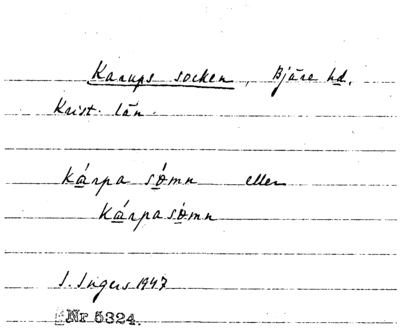 Karups socken, Bjäre hd.
Krist. län.
kárpa sómn eller
kárpasómn
I. Ingers 1947
Nr 5324.